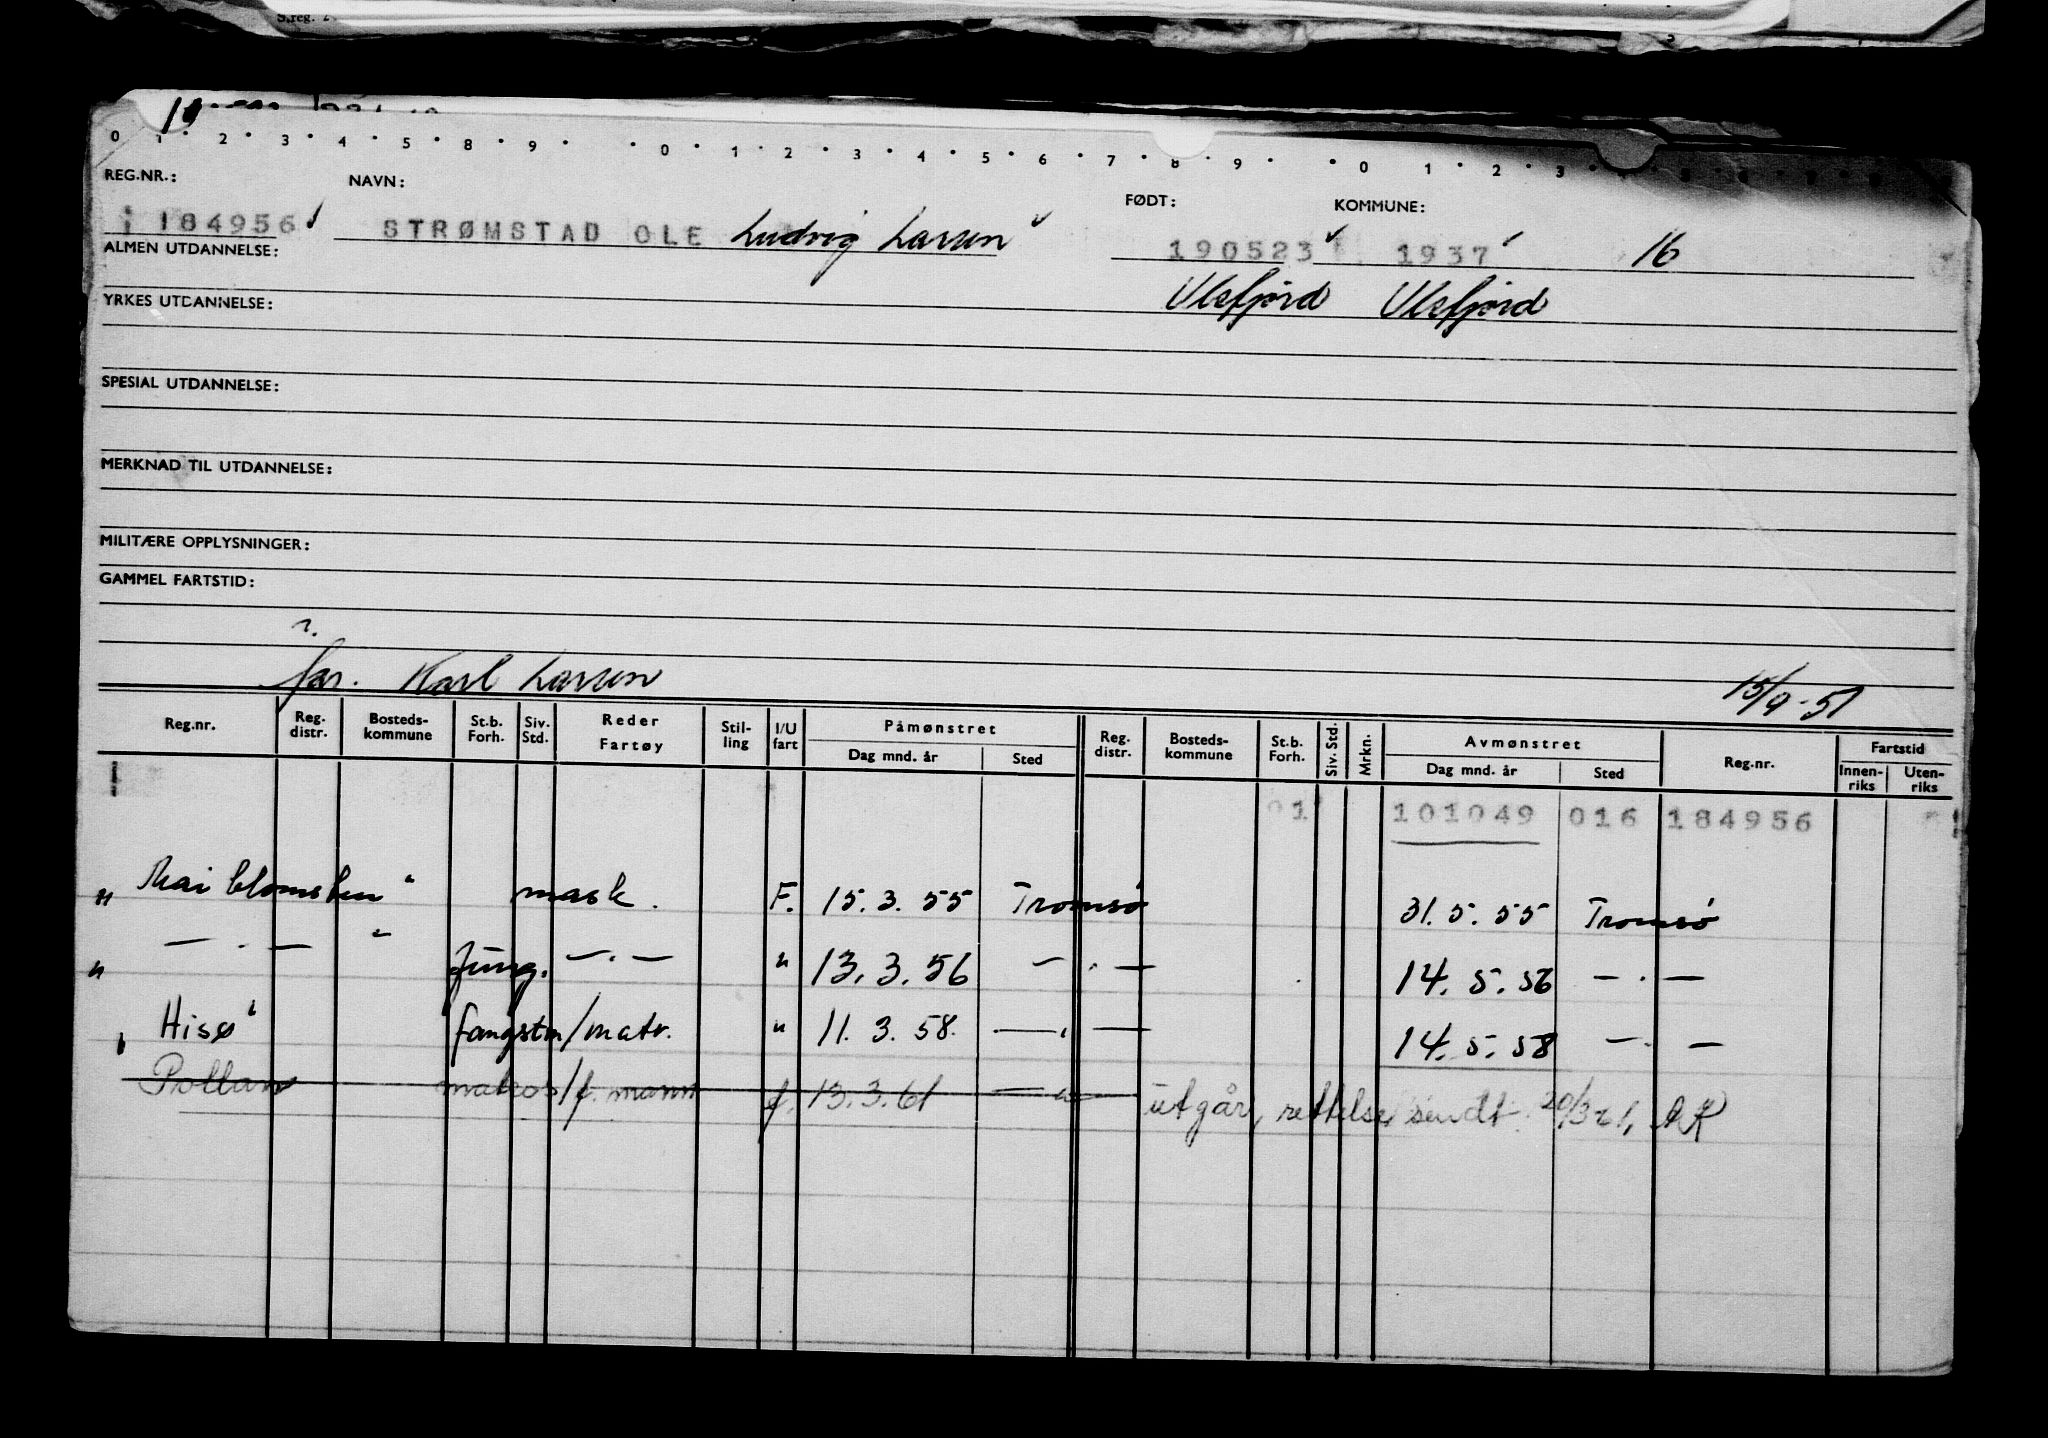 S.reg. 2
0 1 2 3 4 5 8 9 0 1 2 3 4 5 6 7 8 9 0 1 2 3
REG.NR.: NAVN: FØDT: KOMMUNE:
184956 STRØMSTAD OLE Ludvig Larsen 190523 1937 16
ALMEN UTDANNELSE: Ulsfjord Ulsfjord
YRKES UTDANNELSE:
SPESIAL UTDANNELSE:
MERKNAD TIL UTDANNELSE:
MILITÆRE OPPLYSNINGER:
GAMMEL FARTSTID:
?.
far. Karl Larsen 15/9-51
Reg.nr. Reg. distr. Bosteds-kommune St.b. Forh. Siv. Std. Reder Fartøy Stil-ling I/U fart Påmønstret Dag mnd. år Sted Reg. distr. Bosteds-kommune St.b. Forh. Siv. Std. Mrkn. Avmønstret Dag mnd. år Sted Reg.nr. Fartstid Innen-riks Uten-riks
01 101049 016 184956
" Maiblomsten" mask. F. 15.3.55 Tromsø 31.5.55 Tromsø
" — . — " fung. — . — " 13.3.56 — . — 14.5.56 — . —
" Hisø" fangstm/matr. " 11.3.58. — " — 14.5.58 — . —
Pollan matros/f.mann f. 13.3.61 — " — utgår, rettelse sendt 20/3-61, AR